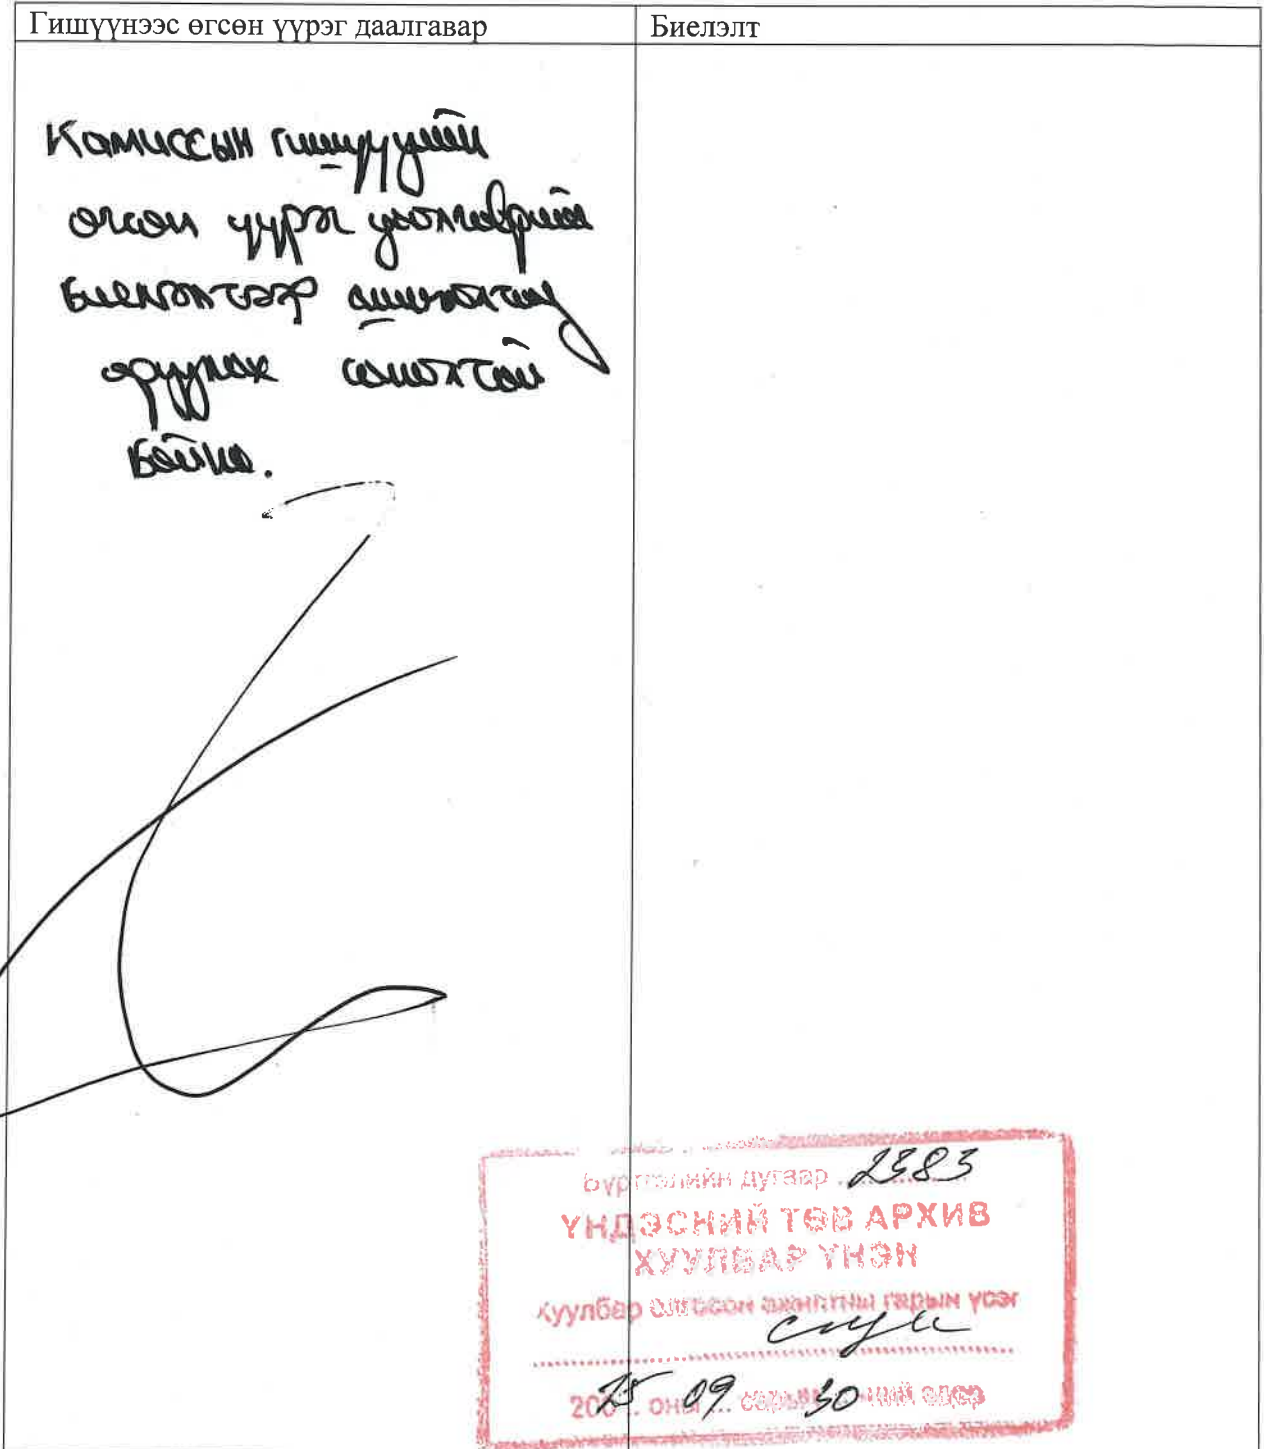 Гишүүнээс өгсөн үүрэг даалгавар
Биелэлт
Камиссын гишүүний
өгсөн үүрэг даалгаврын
биелэлтээр ажиллагаа
оруулах саналтай
байна.
Бүртгэлийн дугаар 2383
ҮНДЭСНИЙ ТӨВ АРХИВ
ХУУЛБАР ҮНЭН
Хуулбар олгосон ажилтны гарын үсэг
200 25 оны 09 сарын 30 ний өдөр